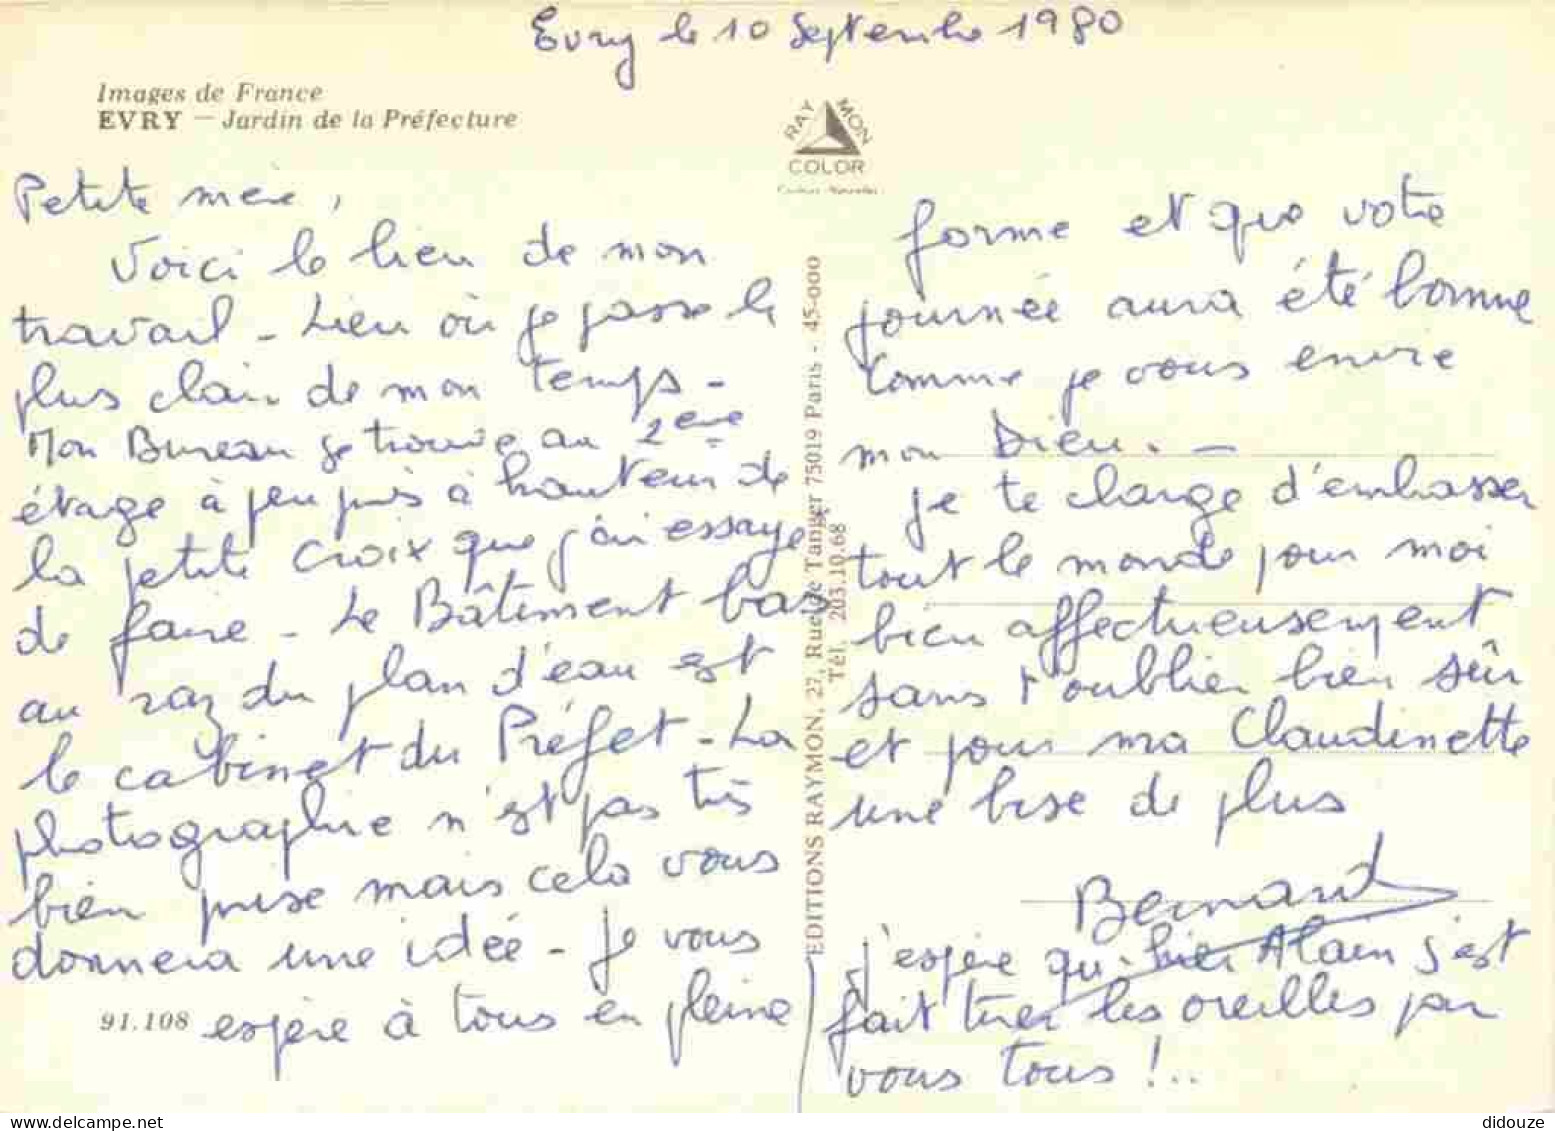 Evry le 10 Septembre 1980
Images de France
EVRY — Jardin de la Préfecture
RAYMON
COLOR
Petite mère,
Voici le lieu de mon
travail - Lieu où je passe le
plus clair de mon temps -
Mon Bureau se trouve au 2ème
étage à peu près à hauteur de
la petite croix que j'ai essayé
de faire - Le Bâtiment bas
au raz du plan d'eau est
le cabinet du Préfet - La
photographie n'est pas très
bien prise mais cela vous
donnera une idée - Je vous
espère à tous en pleine
91.108
EDITIONS RAYMON, 27, Rue de Tanger 75019 Paris - 45-000
Tél. 203.10.68
forme et que votre
journée aura été bonne
Comme je vous envie
mon Dieu. -
Je te charge d'embrasser
tout le monde pour moi
bien affectueusement
sans t'oublier bien sûr
et pour ma Claudinette
une bise de plus
Bernard
J'espère qu'hier Alain s'est
fait tirer les oreilles par
vous tous !..
didouze